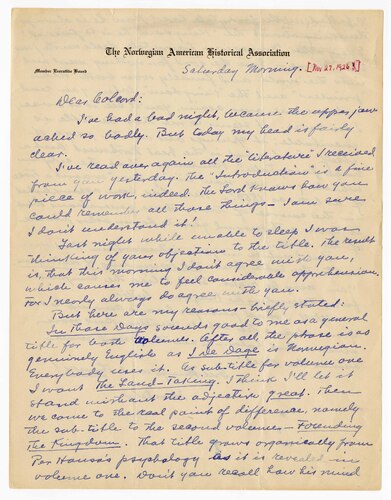 The Norwegian American Historical Association
Member Executive Board
Saturday Morning. [Nov 27, 1926]
Dear Colcord:
I've had a bad night, because the upper jaw
ached so badly. But today my head is fairly
clear.
I've read over again all the "literature" I received
from you yesterday. The "Introduction" is a fine
piece of work, indeed. The Lord knows how you
could remember all those things — I am sure
I don't understand it!
Last night while unable to sleep I was
thinking of your objection to the title. The result
is, that this morning I don't agree with you,
which causes me to feel considerable apprehension.
For I nearly always do agree with you.
But here are my reasons — briefly stated:
In those Days sounds good to me as a general
title for both volumes. After all, the phrase is as
genuinely English as I de Dage is Norwegian.
Everybody uses it. As subtitle for volume one
I want the Land-Taking. I think I'll let it
stand without the adjective great. Then
we come to the real point of difference, namely
the sub-title to the second volume — Founding
the Kingdom. That title grows organically from
Per Hansa's psychology as it is revealed in
volume one. Don't you recall how his mind